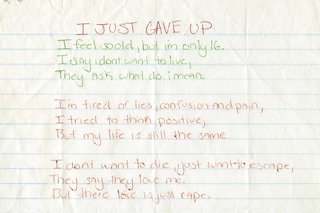 I JUST GAVE UP
I feel so old, but im only 16.
I say i dont want to live,
They ask what do i mean.
I'm tired of lies, confusion and pain,
I tried to think positive,
But my life is still the same
I dont want to die, i just want to escape,
They say they love me,
But there love is just rape.